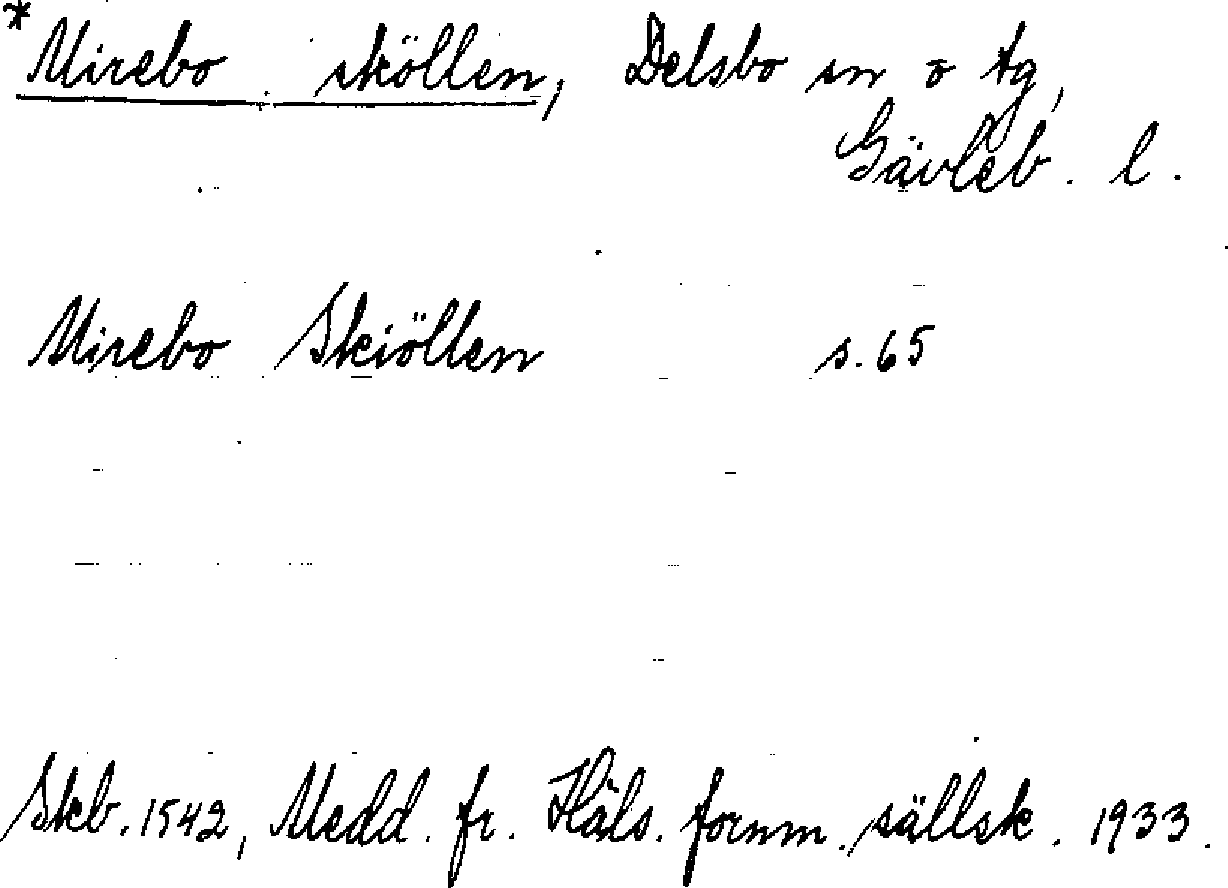 *Mirebo sköllen, Delsbo sn o tg,
Gävleb. l.
Mirebo Skiöllen s. 65
Skb. 1542, Medd. fr. Häls. fornm. sällsk. 1933.